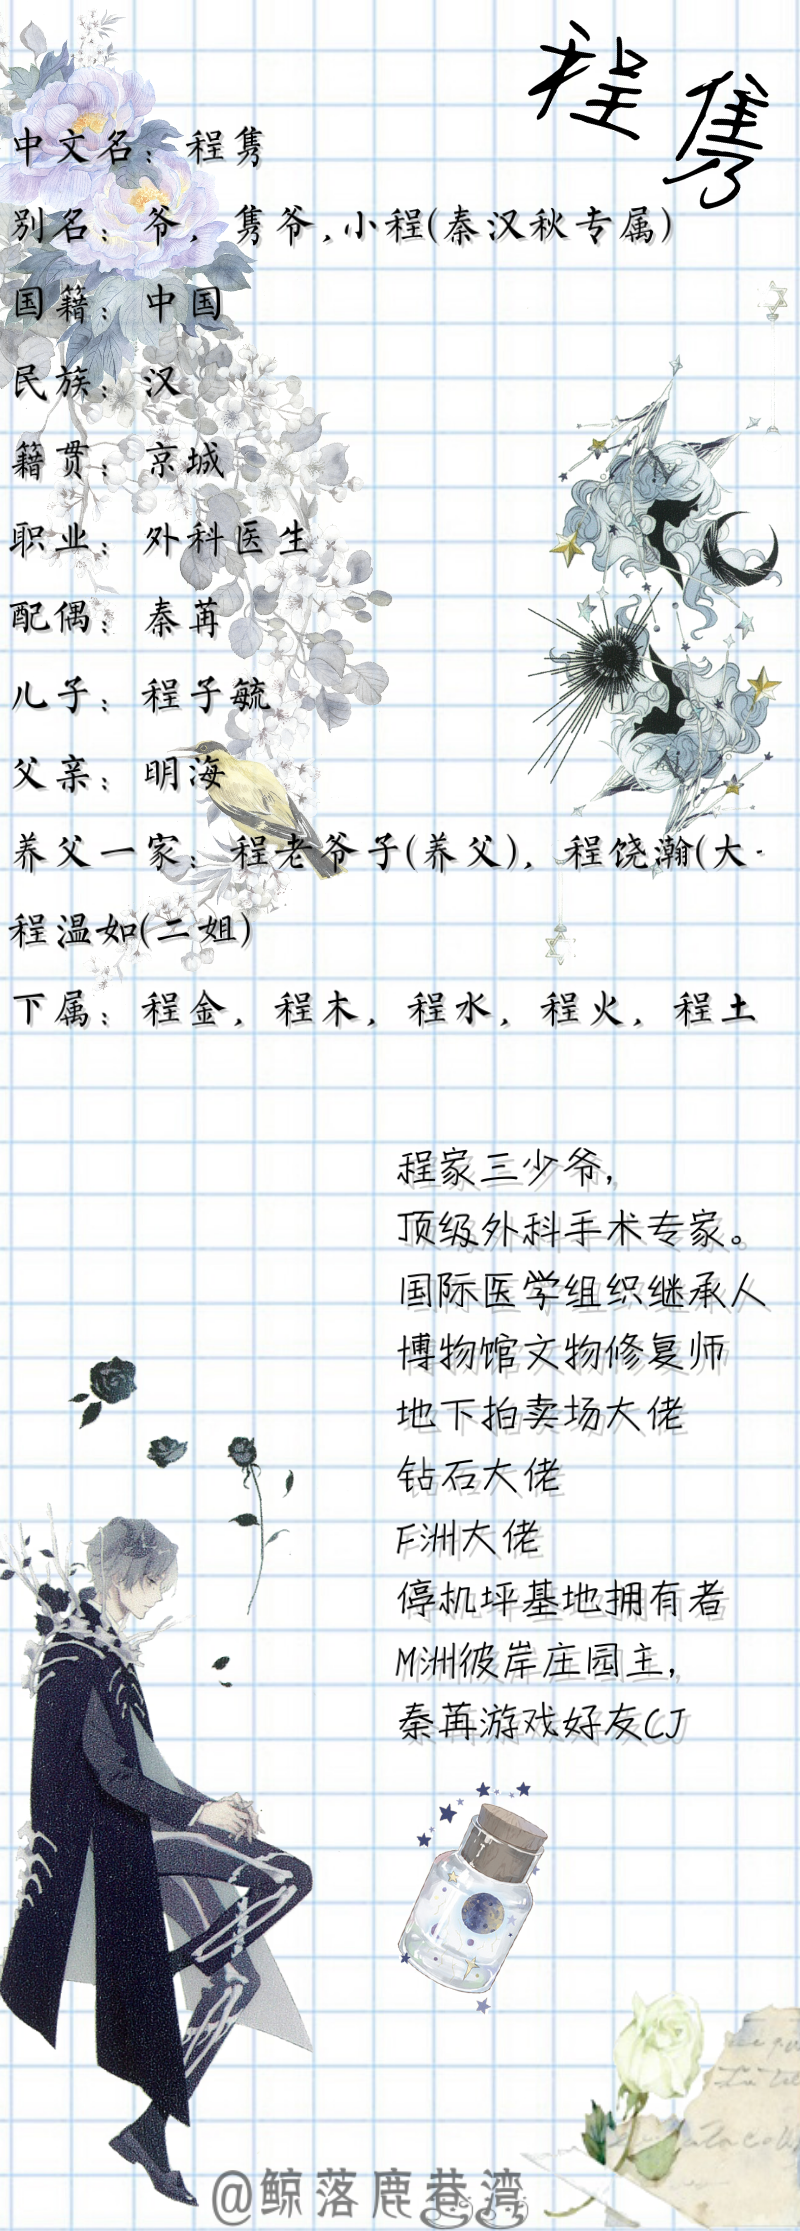 程隽
中文名：程隽
别名：爷，隽爷,小程(秦汉秋专属)
国籍：中国
民族：汉
籍贯：京城
职业：外科医生
配偶：秦苒
儿子：程子毓
父亲：明海
养父一家：程老爷子(养父)，程饶瀚(大
程温如(二姐)
下属：程金，程木，程水，程火，程土
程家三少爷，
顶级外科手术专家。
国际医学组织继承人
博物馆文物修复师
地下拍卖场大佬
钻石大佬
F洲大佬
停机坪基地拥有者
M洲彼岸庄园主，
秦苒游戏好友CJ
@鲸落鹿巷湾